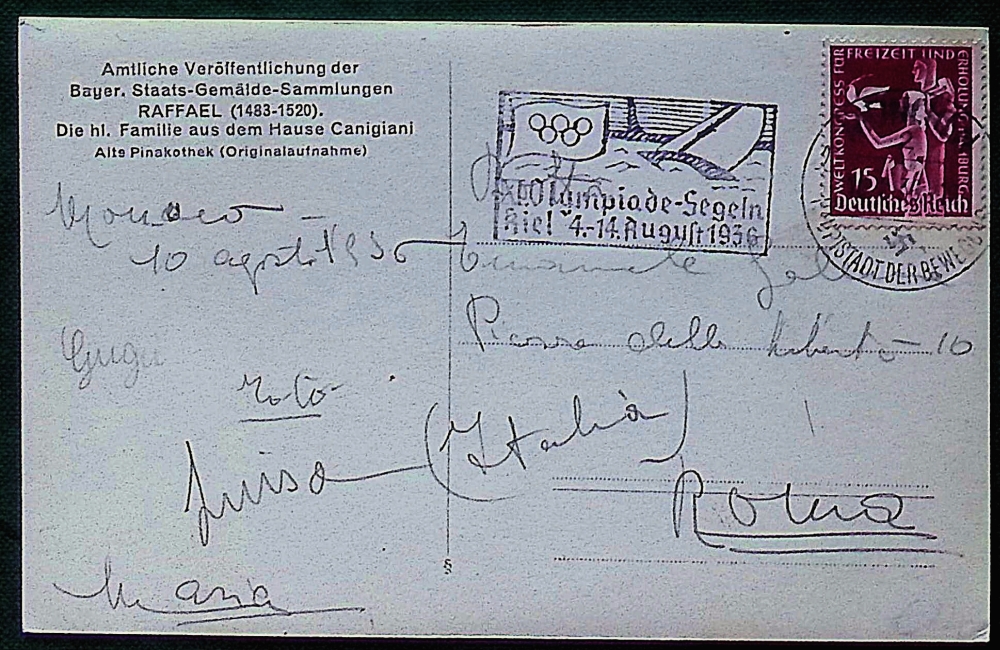 Amtliche Veröffentlichung der
Bayer. Staats-Gemälde-Sammlungen
RAFFAEL (1483-1520).
Die hl. Familie aus dem Hause Canigiani
Alte Pinakothek (Originalaufnahme)
Monaco
10 agosto 1936
Luisa
Maria
XI. Olympiade-Segeln
Kiel 4.-14. August 1936
WELTKONGRESS FÜR FREIZEIT UND ERHOLUNG HAMBURG
15
Deutsches Reich
HAUPTSTADT DER BEWEG
Emanuele
Piazza della Libertà - 10
(Italia)
Roma
§